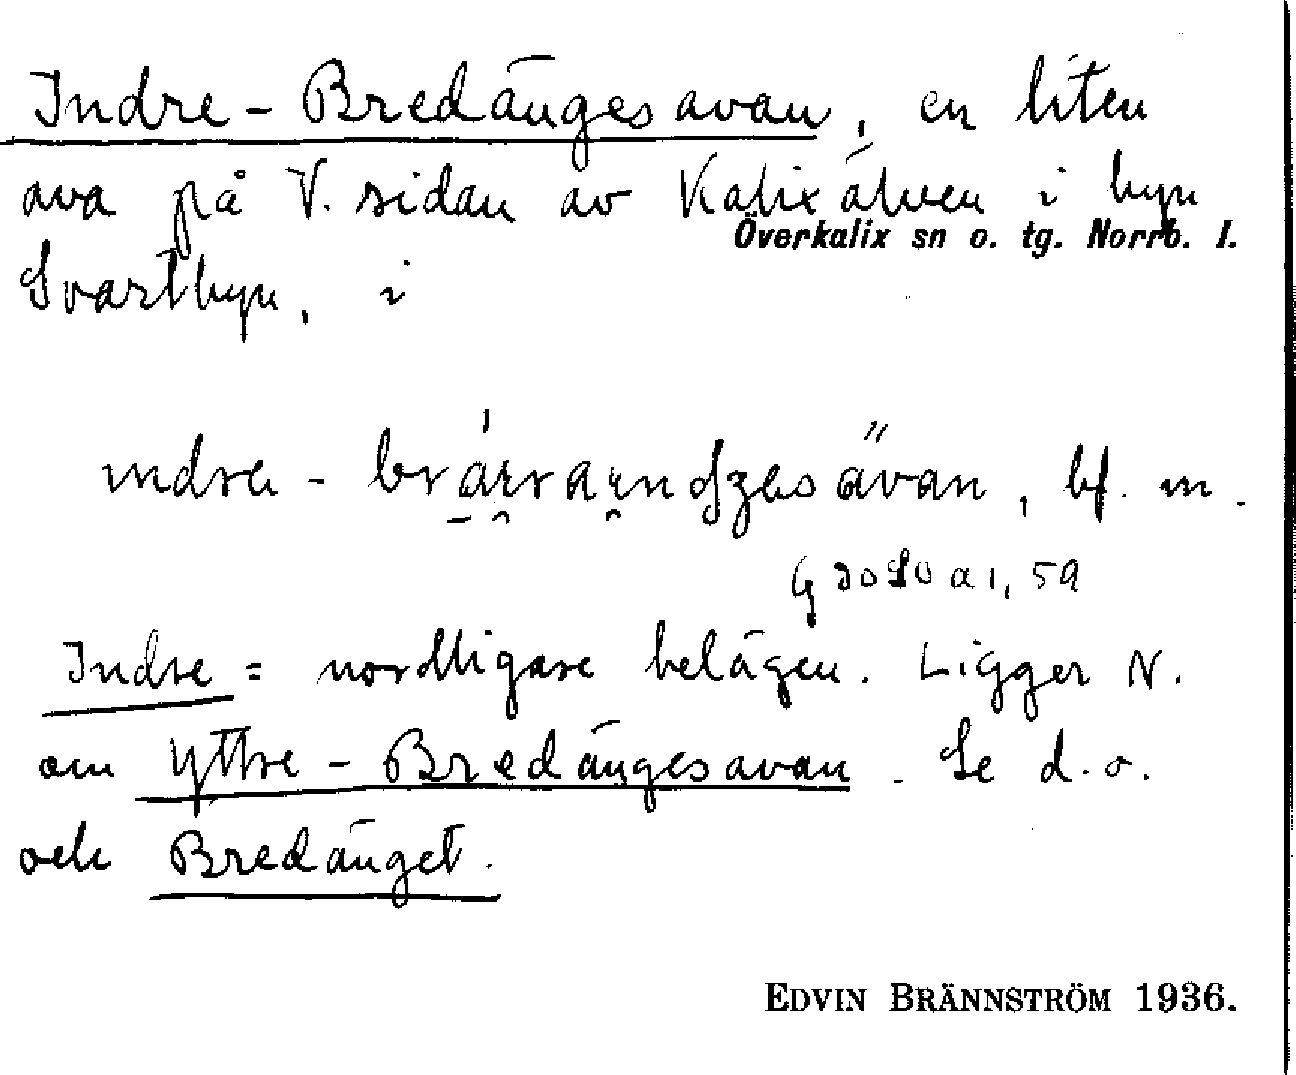 Indre-Bredängesavan, en liten
ava på V. sidan av Kalixälven i byn
Överkalix sn o. tg. Norrb. l.
Svartbyn, i
bf. m.
Indre = nordligare belägen. Ligger N.
om Yttre-Bredängesavan. Se d.o.
och Bredänget.
EDVIN BRÄNNSTRÖM 1936.